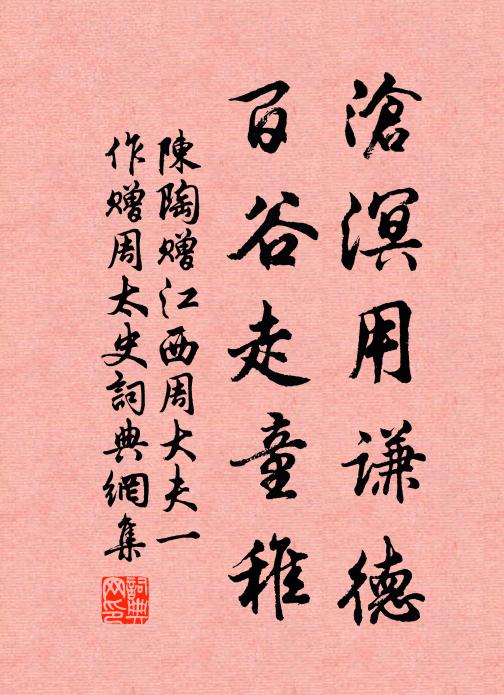 滄溟用謙德
百谷走童稚
陳陶贈江西周大夫一
作贈周太史詞典網集
詞典网印